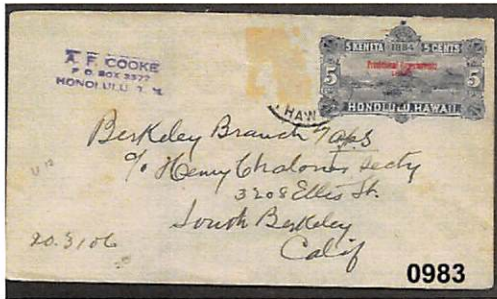 A. F. COOKE
P. O. BOX 3377
HONOLULU T. H.
5 KENITA 1884 5 CENTS
Provisional Government
5 5
HONOLULU, HAWAII.
HAW
Berkeley Branch
c/o Henry Chaloner Secty
3208 Ellis St.
South Berkeley
Calif
0983